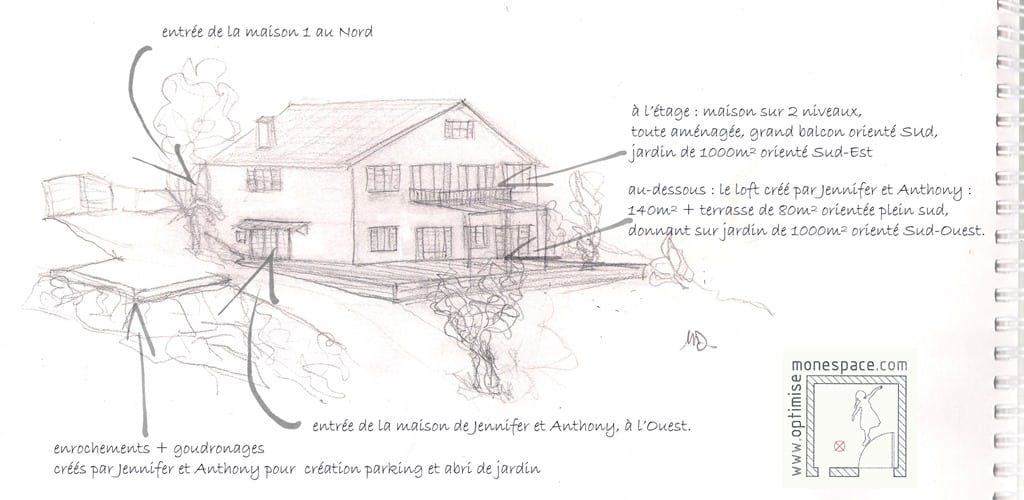 entrée de la maison 1 au Nord
à l'étage : maison sur 2 niveaux,
toute aménagée, grand balcon orienté SUd,
jardin de 1000m² orienté Sud-Est
au-dessous : le loft créé par Jennifer et Anthony :
140m² + terrasse de 80m² orientée plein sud,
donnant sur jardin de 1000m² orienté Sud-Ouest.
entrée de la maison de Jennifer et Anthony, à l'Ouest.
enrochements + goudronages
créés par Jennifer et Anthony pour création parking et abri de jardin
www.optimise
monespace.com